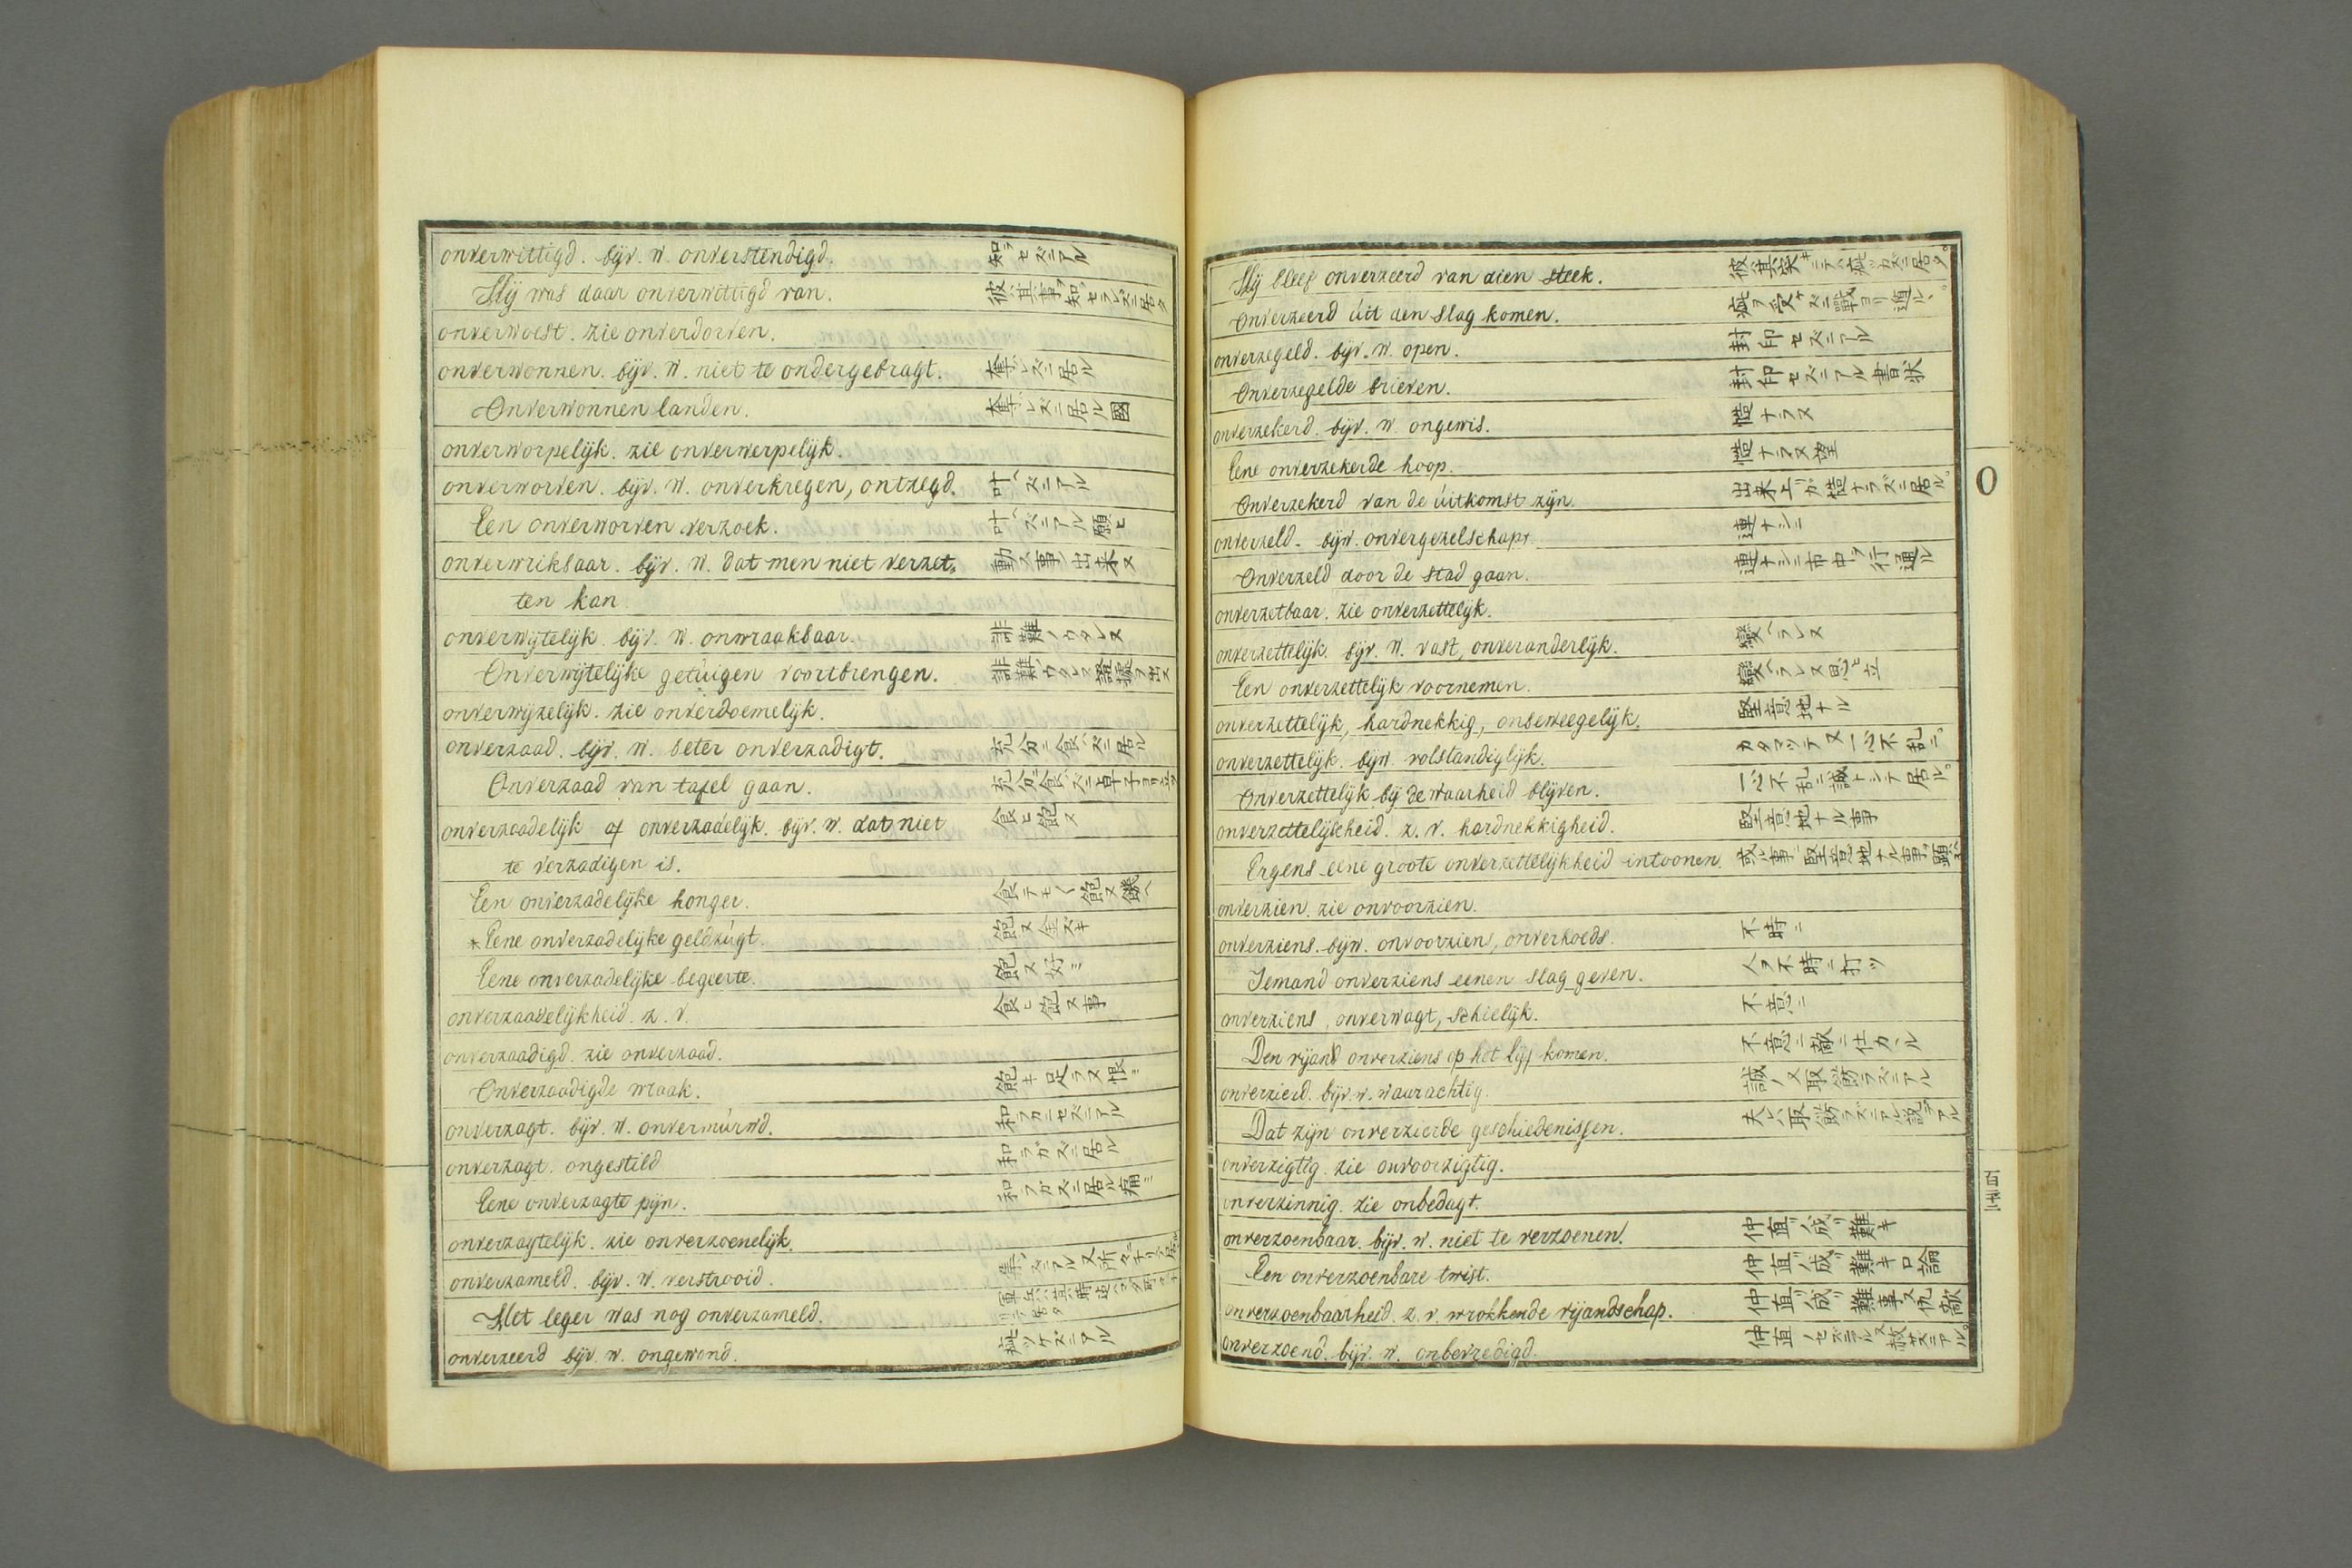 onverwittigd. bijv. w. onverstendigd. 知ラセズニアル
Hij was daar onverwittigd van. 彼ハ其事ヲ知ラセラレズニ居タ
onverwoest. zie onverdorven.
onverwonnen. bijv. w. niet te ondergebragt. 奪ハレズニ居ル
Onverwonnen landen. 奪ハレズニ居ル國
onverworpelijk. zie onverwerpelijk.
onverworven. bijv. w. onverkregen, ontzegd. 叶ハズニアル
Een onverworven verzoek. 叶ハズニアル願ヒ
onverwrikbaar. bijv. w. dat men niet verzet- 動ス事ノ出来ヌ
ten kan
onverwijtelijk. bijv. w. onwraakbaar. 非難ノウタレヌ
Onverwijtelijke getuigen voortbrengen. 非難ノウタレヌ證據ヲ出ス
onverwijzelijk. zie onverdoemelijk.
onverzaad. bijv. w. beter onverzadigt. 充分ニ食ハズニ居ル
Onverzaad van tafel gaan. 充分ニ食ハズニ卓子ヨリ立ツ
onverzaadelijk of onverzadelijk. bijv. w. dat niet 食ヒ飽ヌ
te verzadigen is.
Een onverzadelijke honger. 食テモ〱飽ヌ饑ヘ
*Eene onverzadelijke geldzugt. 飽ヌ金ズキ
Eene onverzadelijke begeerte. 飽ヌ好ミ
onverzaadelijkheid. z. v. 食ヒ飽ヌ事
onverzaadigd. zie onverzaad.
Onverzaadigde wraak. 飽キ足ラヌ恨ミ
onverzagt. bijv. w. onvermurwd. 和ラカニセズニアル
onverzagt. ongestild 和ラガズニ居ル
Eene onverzagte pijn. 和ラガズニ居ル痛ミ
onverzagtelijk. zie onverzoenelijk.
onverzameld. bijv. w. verstrooid.
Het leger was nog onverzameld.
onverzeerd bijv. w. ongewond. 疵ツケズニアル
Hij bleef onverzeerd van dien steek. 彼ハ其突キニテハ疵ツカズニ居タ。
Onverzeerd uit den slag komen. 疵ヲ受ケズニ戰ヨリ遁ル、。
onverzegeld. bijv. w. open. 封印セズニアル
Onverzegelde brieven. 封印セズニアル書状
onverzekerd. bijv. w. ongewis. 慥ナラヌ
Eene onverzekerde hoop. 慥ナラヌ望
Onverzekerd van de uitkomst zijn. 出来上リガ慥ナラズニ居ル。
onverzeld. bijw. onvergezelschapt. 連ナシニ
Onverzeld door de stad gaan. 連ナシニ市中ヲ行通ル
onverzetbaar. zie onverzettelijk.
onverzettelijk. bijv. w. vast, onveranderlijk. 變ヘラレヌ
Een onverzettelijk voornemen. 變ヘラレヌ思ヒ立
onverzettelijk, hardnekkig, onbeweegelijk. 堅意地ナル
onverzettelijk. bijw. volstandiglijk. カタマツテ又一心不乱ニ。
Onverzettelijk bij de waarheid blijven. 一心不乱ニ誠トシテ居ル。
onverzettelijkheid. z. v. hardnekkigheid. 堅意地ナル事
Ergens eene groote onverzettelijkheid intoonen. 或ル事ニ堅意地ナル事ヲ顕ス
onverzien. zie onvoorzien.
onverziens. bijw. onvoorzien, onverhoeds. 不時ニ
Iemand onverziens eenen slag geven. 人ヲ不時ニ打ツ
onverziens, onverwagt, schielijk. 不意ニ
Den vijand onverziens op het lijf komen. 不意ニ敵ニ仕カヽル
onverzierd. bijv. w. waarachtig. 誠ノ又取飾ラズニアル
Dat zijn onverzierde geschiedenissen. 夫レハ取飾ラズニアル説デアル
onverzigtig. zie onvoorzigtig.
onverzinnig. zie onbedagt.
onverzoenbaar. bijv. w. niet te verzoenen. 仲直リノ成リ難キ
Een onverzoenbare twist. 仲直リノ成リ難キ口論
onverzoenbaarheid. z. v. wrokkende vijandschap. 仲直リノ成リ難事又仇敵
onverzoend. bijv. w. onbevredigd. 仲直ノセズニアル又赦サズニアル。
O